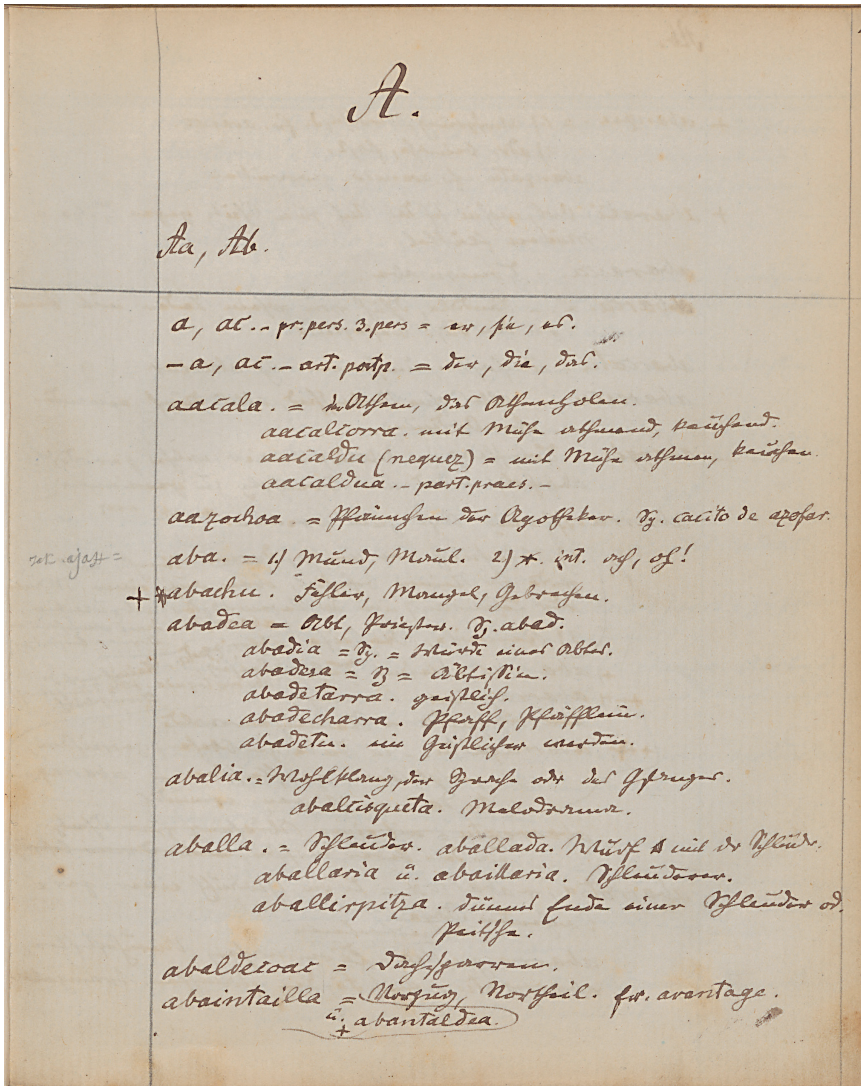 A.
Aa, Ab.
a, ac. - pr. pers. 3. pers = er, sie, es.
- a, ac. - art. postp. = der, die, das.
aacala. = der Athem, das Athemholen.
aacalcorra. mit Mühe athmend, keuchend.
aacaldu (neguez) = mit Mühe athmen, keuchen.
aacaldua. - part. praes. -
aazochoa. = Pfännchen der Apotheker. Sp. cacito de azofar.
aba. = 1.) Mund, Maul. 2) *. int. ach, oh!
+ * abachu. Fehler, Mangel, Gebrechen.
abadea = Abt, Priester. Sp. abad.
abadia = Sp. = Würde eines Abtes.
abadesa = Sp = Äbtissin.
abadetarra. geistlich.
abadecharra. Pfaff, Pfäfflein.
abadetu. ein Geistlicher werden.
abalia. = Wohlklang, der Sprache oder des Gesanges.
abalcisqueta. Melodrama.
aballa. = Schleuder. aballada. Wurf mit der Schleuder.
aballaria ü. abaillaria. Schleuderer.
aballirpitza. dünnes Ende einer Schleuder od.
Peitsche.
abaldecoac = Dachsparren.
abaintailla = Vorzug, Vortheil. fr. avantage.
ü. + abantaldea.